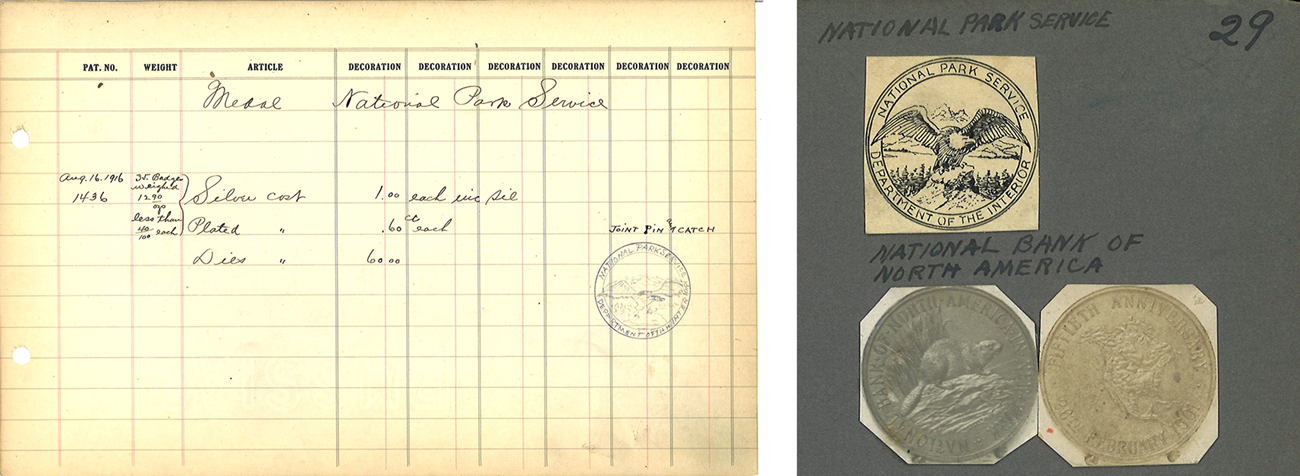 PAT. NO. WEIGHT ARTICLE DECORATION DECORATION DECORATION DECORATION DECORATION DECORATION
Medal National Park Service
Aug. 16. 1916
1436
35 Badges
weighed
12 90
less than
40/100 each
Silver cost 1.00 each inc sil
Plated " .60 ct each
JOINT PIN & CATCH
Dies " 60.00
NATIONAL PARK SERVICE
DEPARTMENT OF THE INTERIOR
NATIONAL PARK SERVICE
29
NATIONAL PARK SERVICE
DEPARTMENT OF THE INTERIOR
NATIONAL BANK OF
NORTH AMERICA
NATIONAL BANK OF NORTH AMERICA
ANNIVERSARY
FEBRUARY 1901